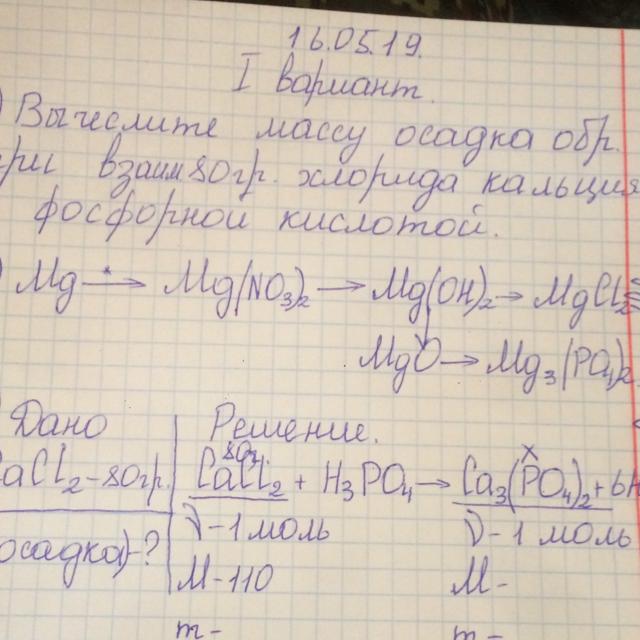 16.05.19.
I вариант.
) Вычеслите массу осадка обр.
при взаим 80гр. хлорида кальция
фосфорной кислотой.
) Mg → Mg(NO₃)₂ → Mg(OH)₂ → MgCl₂
MgO → Mg₃(PO₄)₂
Дано Решение.
80г. x
CaCl₂ - 80гр. CaCl₂ + H₃PO₄ → Ca₃(PO₄)₂ + 6H
ν - 1 моль ν - 1 моль
осадка) - ? M - 110 M -
m - m -